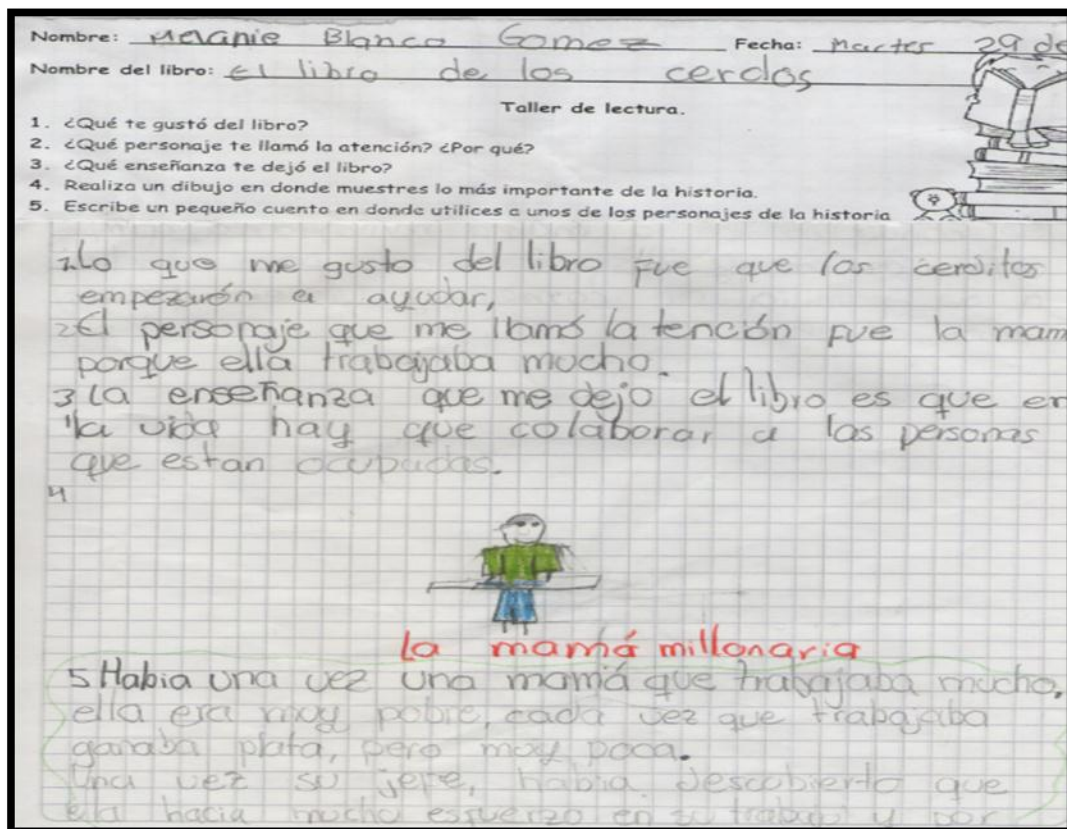 Nombre: Melanie Blanco Gomez Fecha: Martes 29 de
Nombre del libro: El libro de los cerdos
Taller de lectura.
1. ¿Qué te gustó del libro?
2. ¿Qué personaje te llamó la atención? ¿Por qué?
3. ¿Qué enseñanza te dejó el libro?
4. Realiza un dibujo en donde muestres lo más importante de la historia.
5. Escribe un pequeño cuento en donde utilices a unos de los personajes de la historia
1. Lo que me gusto del libro fue que los cerditos
empezarón a ayudar,
2 El personaje que me llamó la tención fue la mam
porque ella trabajaba mucho.
3 La enseñanza que me dejo el libro es que en
la vida hay que colaborar a las personas
que estan ocupadas.
4
la mamá millonaria
5 Habia una vez una mamá que trabajaba mucho,
ella era muy pobre, cada vez que trabajaba
ganaba plata, pero muy poca.
Una vez su jefe, habia descobierto que
ella hacia mucho esfuerzo en su trabajo y por